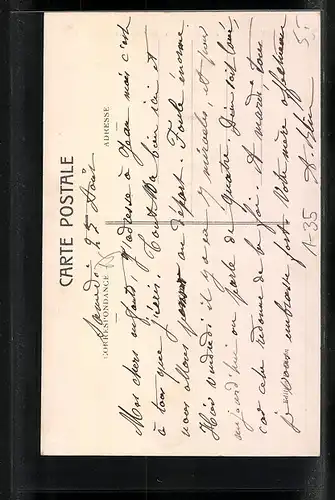 CARTE POSTALE
CORRESPONDANCE
ADRESSE
Samedi 25 Août
Mes chers enfants, j'adresse à Jean mais c'est
à tous que j'écris. Tout va bien ici et
vous allons au départ. Foule énorme.
Hier vendredi il y a eu 7 miracles, et pour
aujourd'hui on parle de quatre. Dieu soit loué,
car cela redonne de la foi. A mardi, tous
je vous embrasse fort. Votre mère affectionnée
A-35
5.-